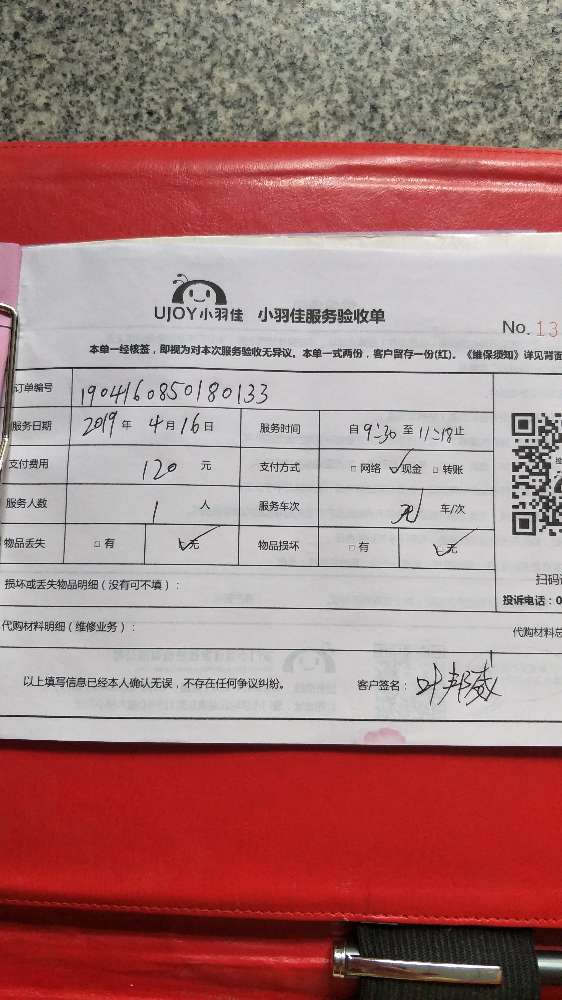 UJOY小羽佳 小羽佳服务验收单
No. 13
本单一经核签，即视为对本次服务验收无异议。本单一式两份，客户留存一份(红)。《维保须知》详见背面
订单编号 1904160850180133
服务日期 2019 年 4 月 16 日 服务时间 自 9:30 至 11:18 止
支付费用 120 元 支付方式 □ 网络 ✓现金 □ 转账
服务人数 1 人 服务车次 车/次
物品丢失 □ 有 ✓无 物品损坏 □ 有 ✓无
扫码
损坏或丢失物品明细（没有可不填）：
投诉电话：0
代购材料明细（维修业务）：
代购材料总
以上填写信息已经本人确认无误，不存在任何争议纠纷。 客户签名： 叶邦威